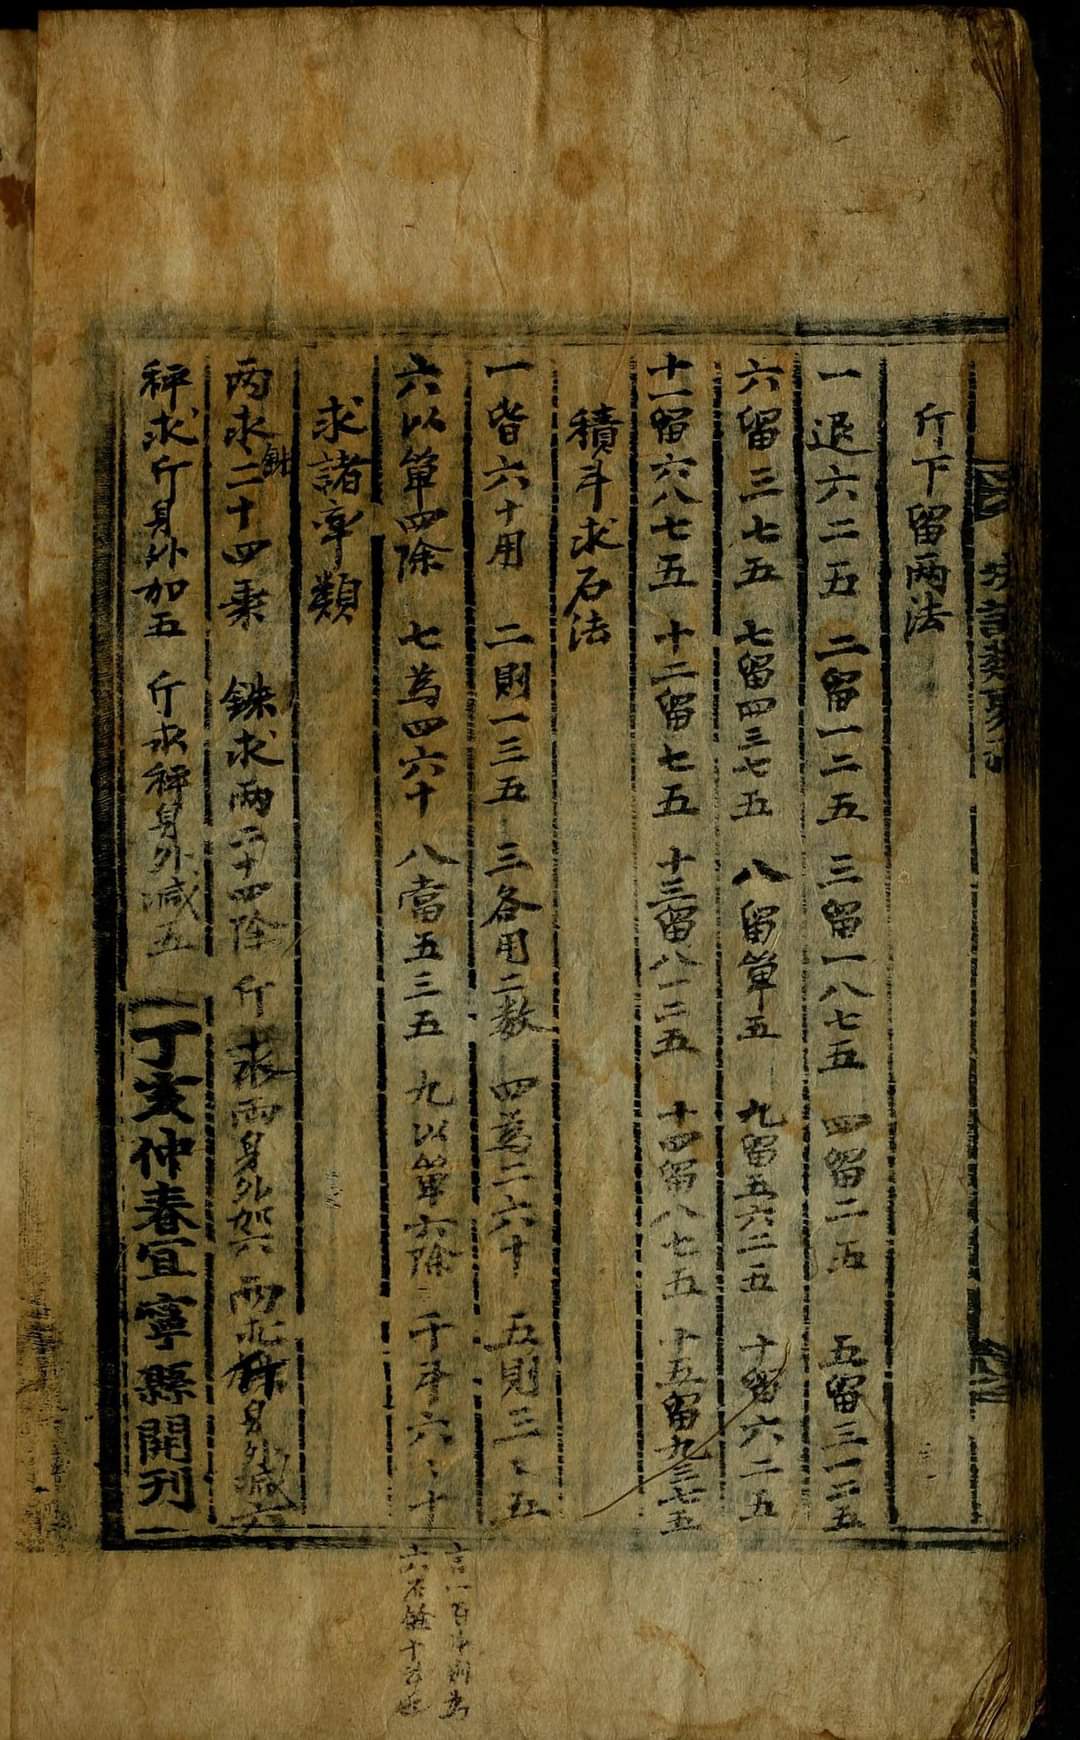 斤下留兩法
一退六二五 二留一二五 三留一八七五 四留二五 五留三一二五
六留三七五 七留四三七五 八留單五 九留五六二五 十留六二五
十一留六八七五 十二留七五 十三留八一二五 十四留八七五 十五留九三七五
積斗求石法
一皆六十用 二則一三五 三各用二数 四爲二六十 五則三〻五
六以單四除 七為四六十 八當五三五 九以單六除 千斗六〻十
求諸率類
兩求銖二十四乘 銖求兩二十四除 斤求兩身外加六 兩求斤身外减六
秤求斤身外加五 斤求秤身外减五
丁亥仲春宜寧縣開刊
六石餘十